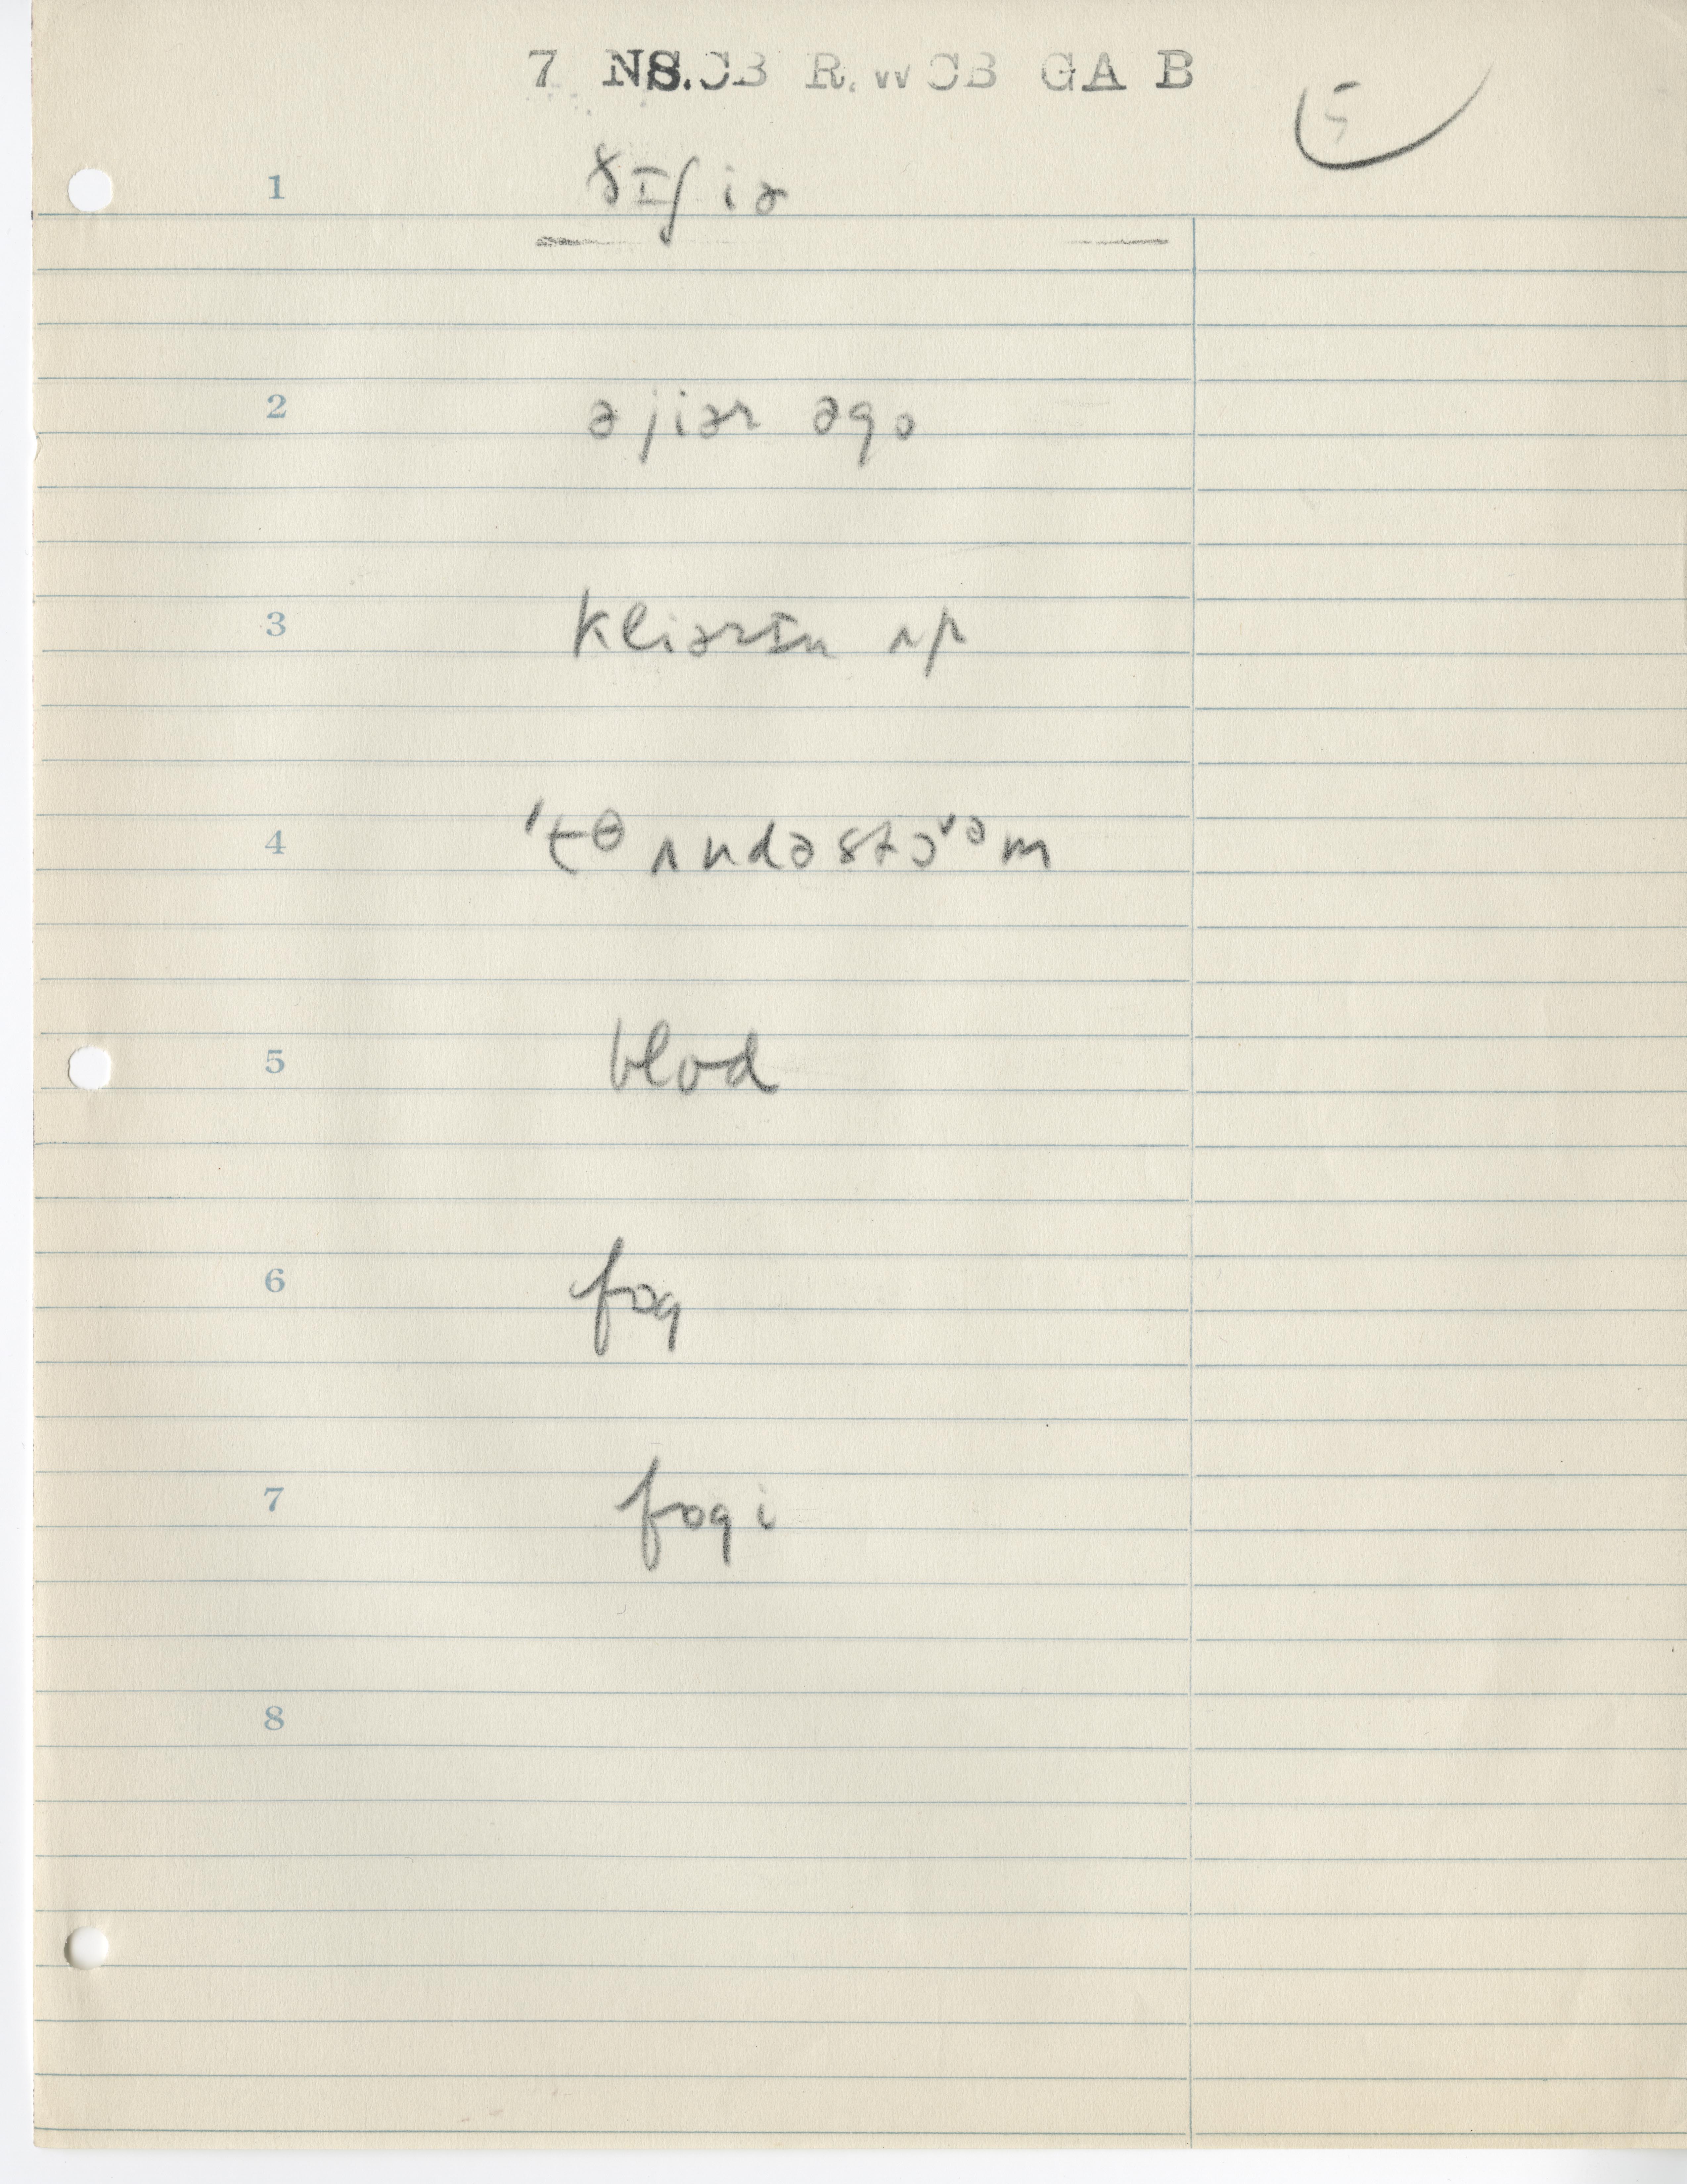 7 NS.CB R.WCB GA B
5
1 ðɪʃ iə
2 ə jiər əgo
3 kliərɪn ʌp
4 'tθʌndəstɔᵛᵊm
5 blod
6 fog
7 fogi
8